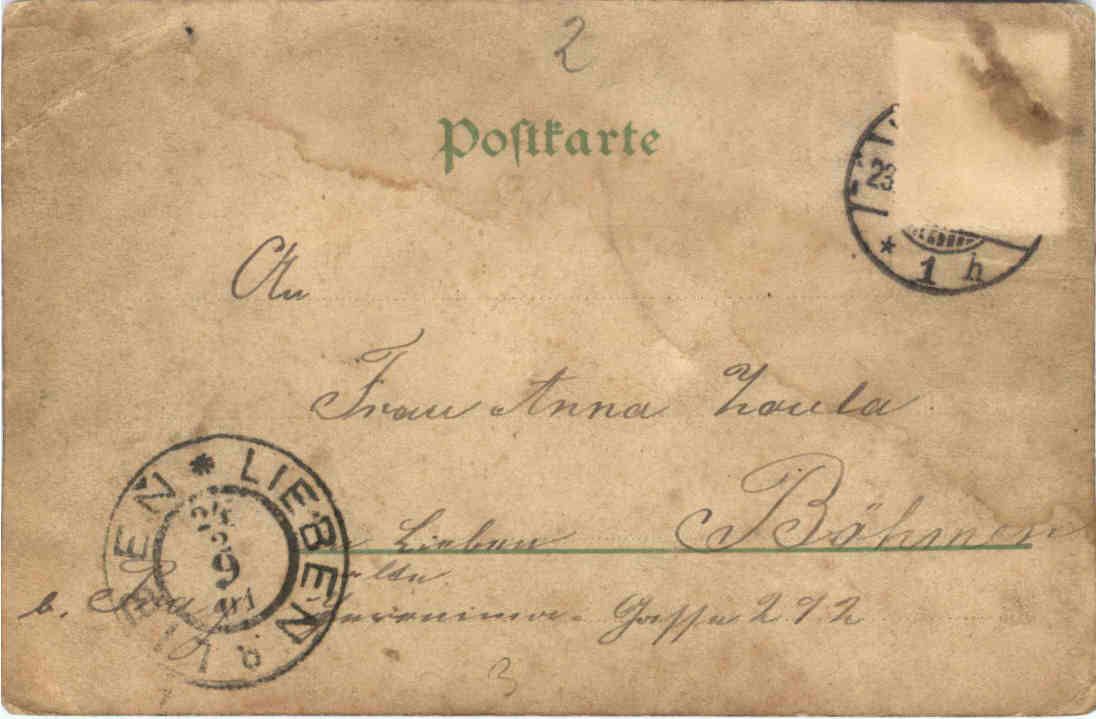 2
Postkarte
23
1 h
An
Frau Anna Zoula
Lieben Böhmen
b. alte
Gasse 292
* LIEBEN * LIBEŇ
24
9
3